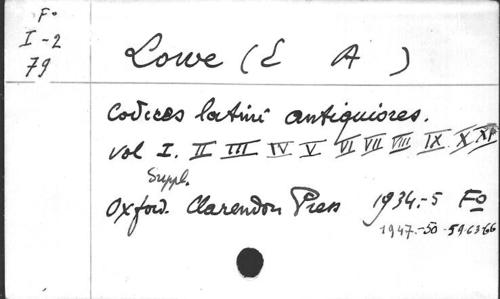 Fo
I-2
79
Lowe (E A)
Codices latini antiquiores.
vol I. II III IV V VI VII VIII IX X XI
Suppl.
Oxford. Clarendon Press 1934-5 Fo
1947-50-59.63-66